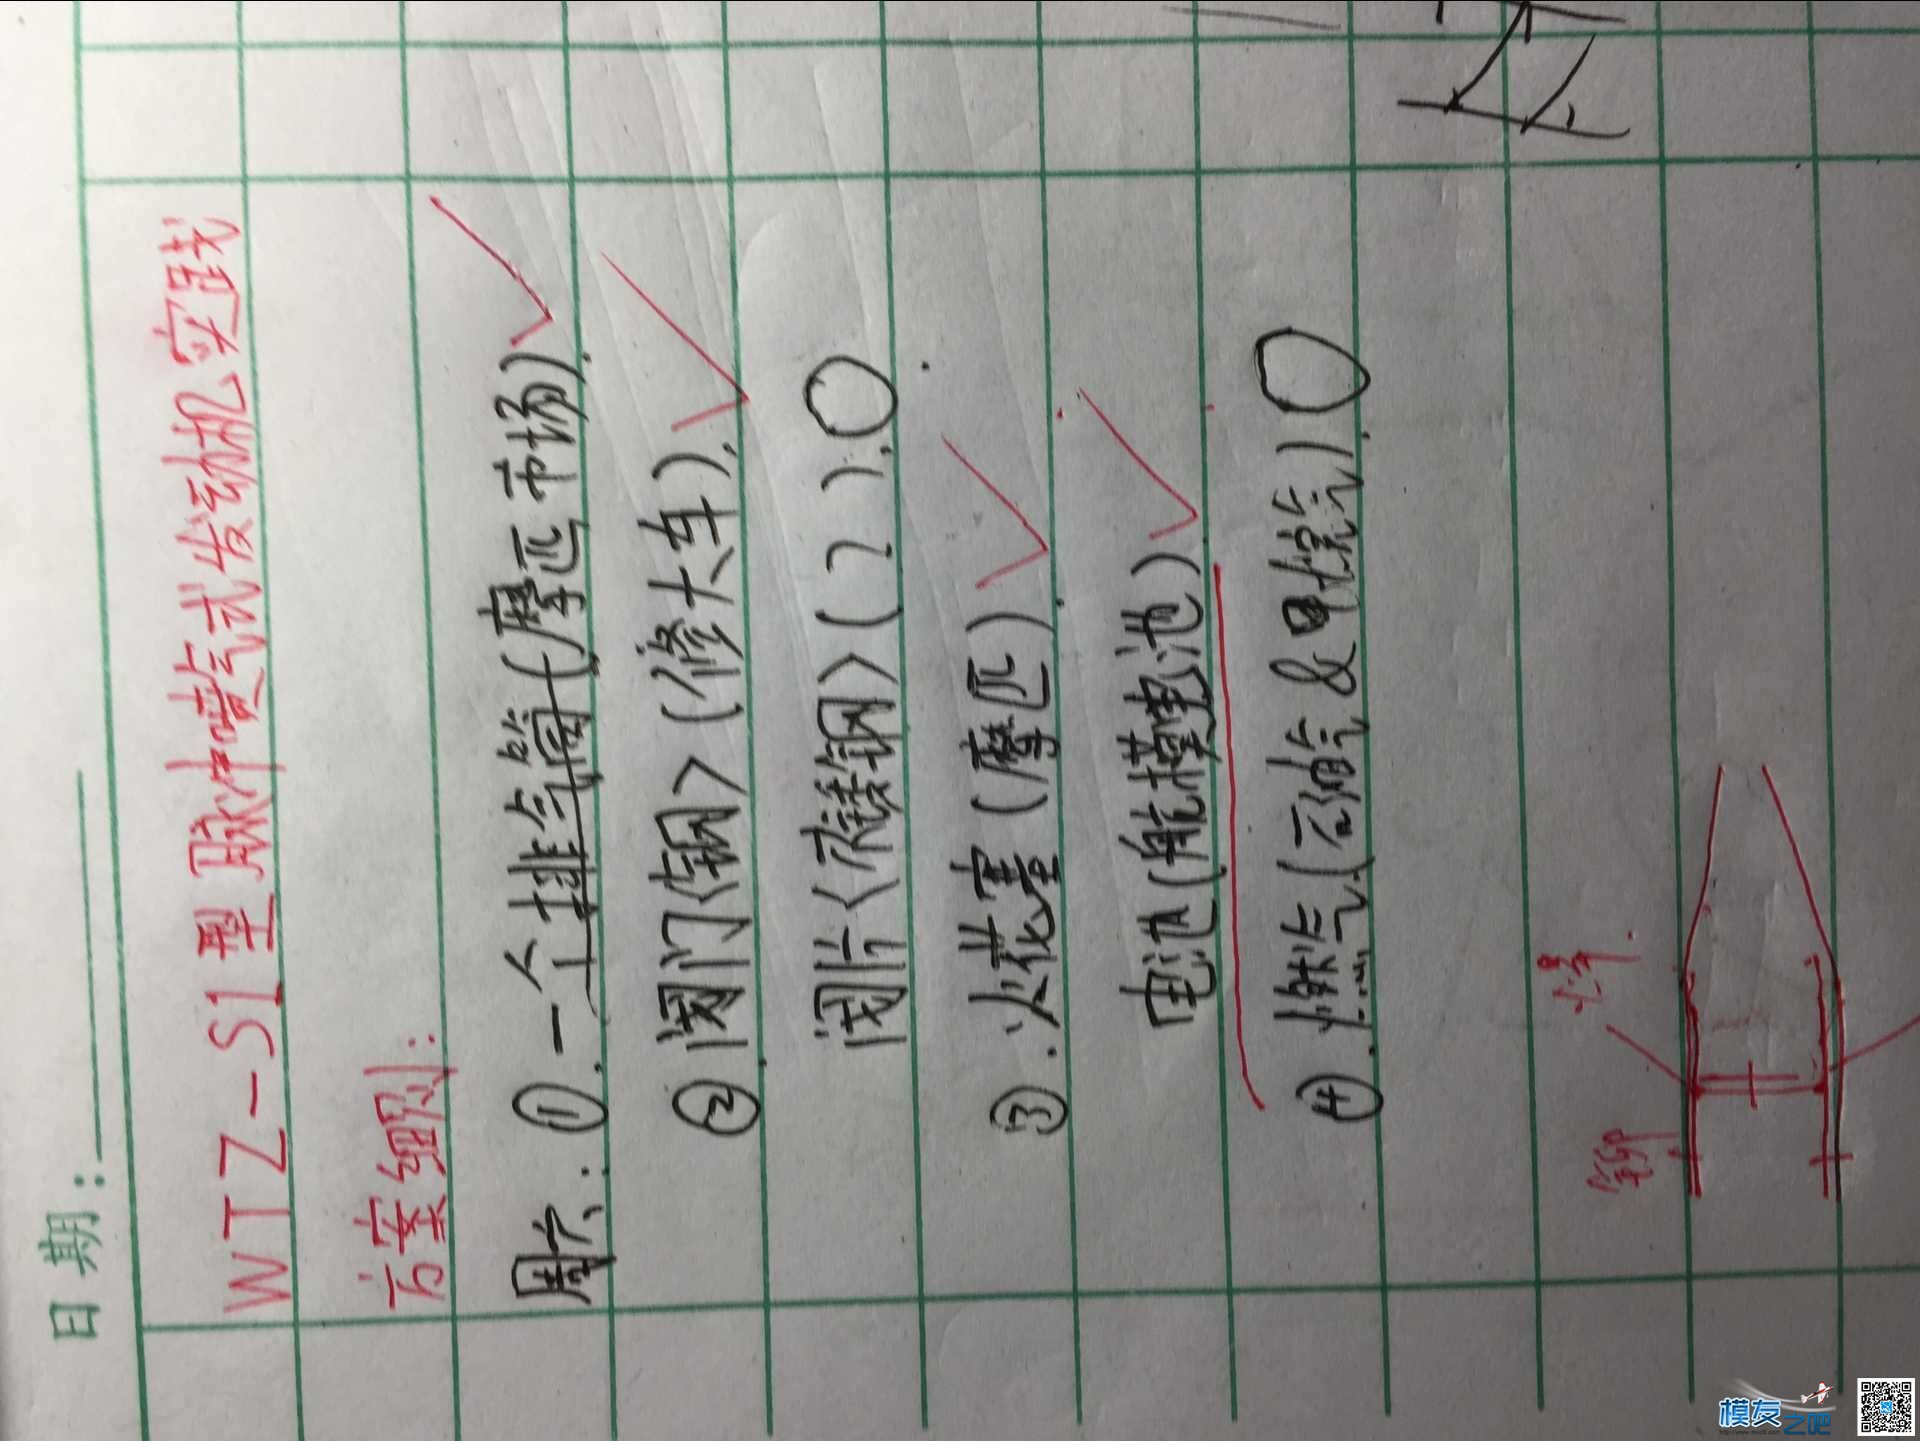 日期:
WTZ-S1型 脉冲喷气式发动机实践
方案细则:
周六: ①.一个排气筒(摩匹市场).
②阀门〈钢〉(修大车).
阀片〈碳钢〉(?).
③.火花塞(摩匹).
电池(航模电池)
④.燃气(石油气&甲烷气).
模友之吧